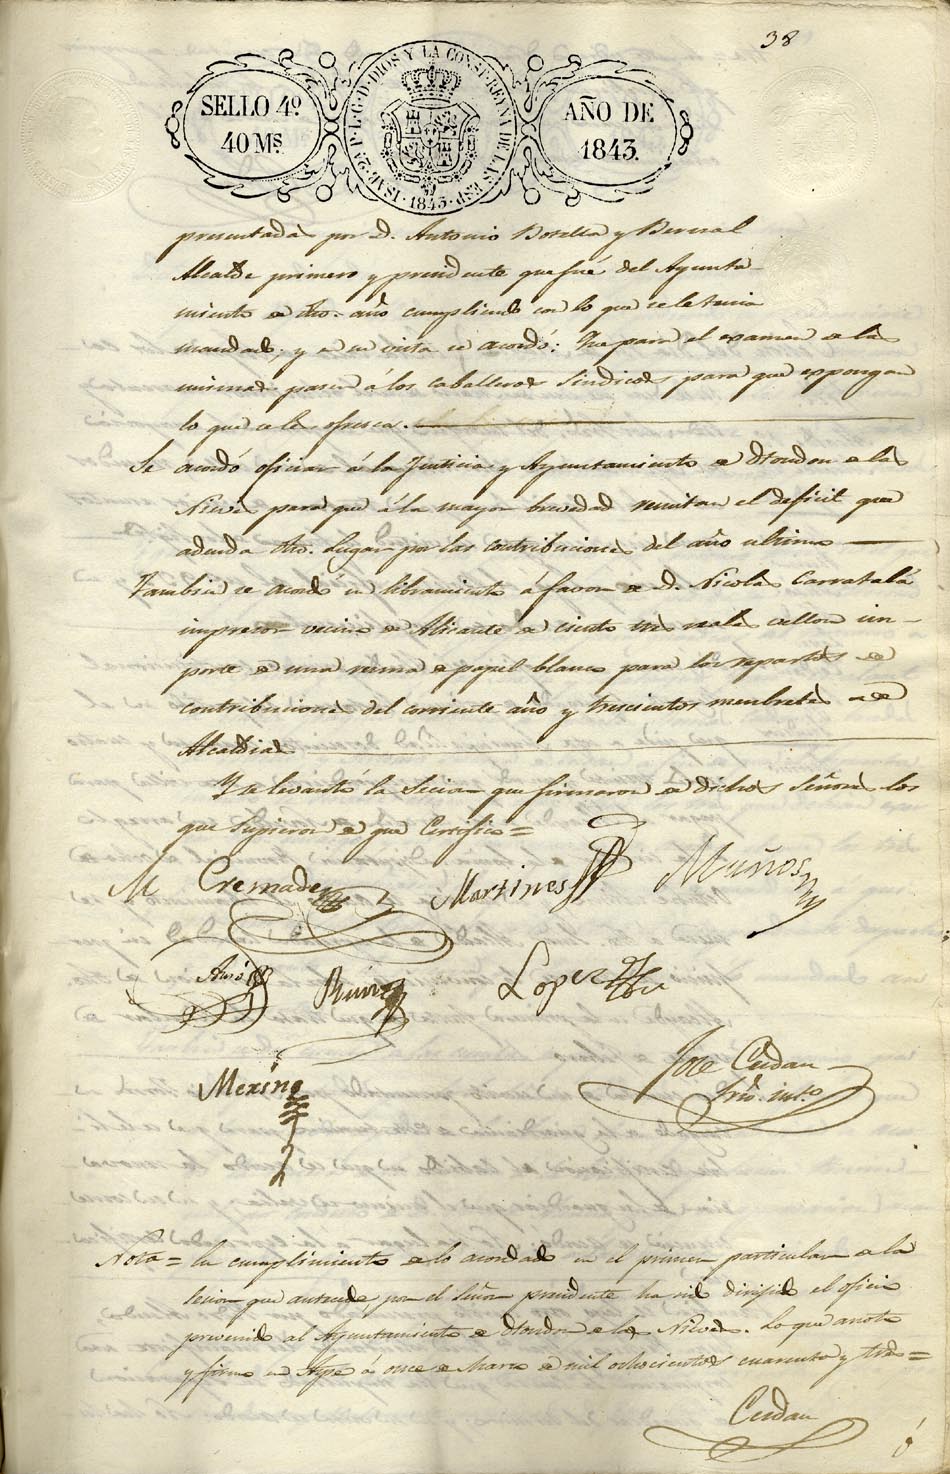 38
SELLO 4º
40 Ms.
ISAB. 2ª P. L. G. D. DIOS Y LA CONST. REYNA DE LAS ESP.
1843
AÑO DE
1843.
presentadas por D. Antonio Botella y
Alcalde primero y presidente que fué del Ayunta-
miento de dho. año cumpliendo con lo que se le tenia
mandado, y en su vista se acordó: Que para el examen de las
mismas pasen á los caballeros Sindicos para que espongan
lo que se les ofresca.
Se acordó oficiar á la Justicia y Ayuntamiento de Hondon de las
Nieves para que á la mayor brevedad remitan el deficit que
adeuda dho. Lugar por las contribuciones del año ultimo
Tambien se acordó un libramiento á favor de D. Nicolas Carratalá
impresor vecino de Alicante de ciento tres reales vellon im-
porte de una resma de papel blanco para los repartos de
contribuciones del corriente año y trescientas membretas de
Alcaldia
Y se levantó la Secion que firmaron de dichos Señores los
que Supieron de que Certifico =
M Cremades Martines Muños
Lopez
Merino
Jose Cerdan
Srio. into.
Nota = En cumplimiento de lo acordado en el primer particular de la
Secion que antecede, por el Señor presidente ha sido dirigido el oficio
prevenido al Ayuntamiento de Hondon de las Nieves. Lo que anoto
y firmo en Aspe á once de Marzo de mil ochocientos cuarenta y tres =
Cerdan
ó